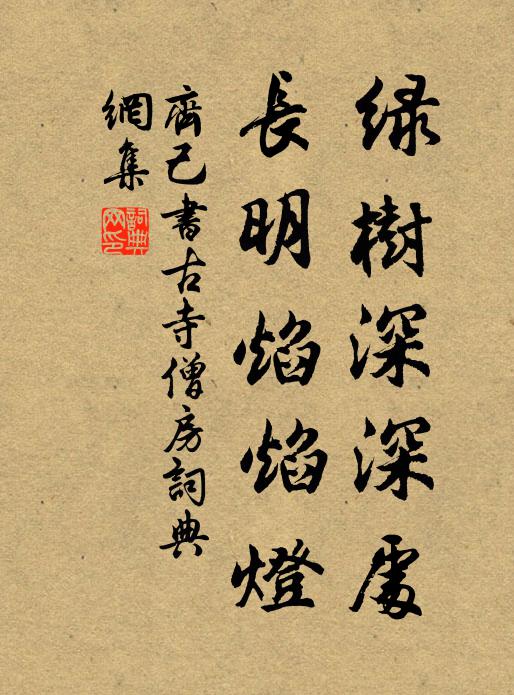 绿樹深深處
長明焰焰燈
齊己書古寺僧房詞典
網集
詞典
网印